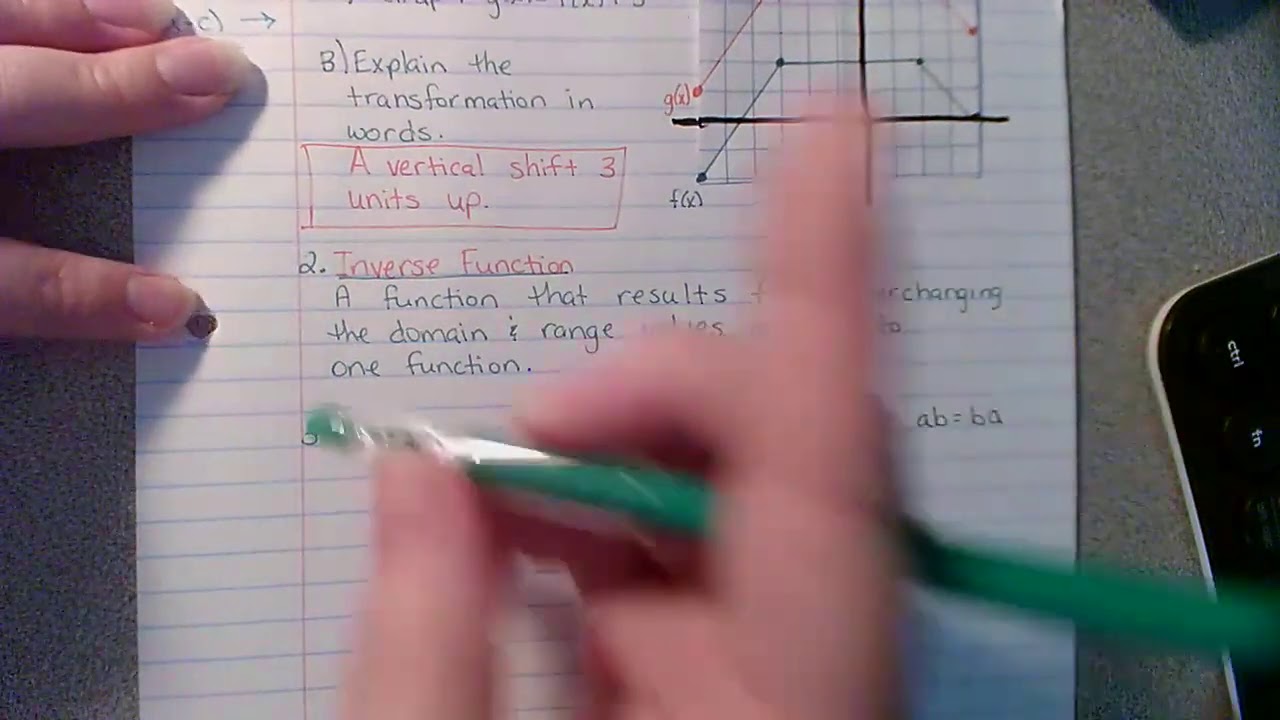 B) Explain the
transformation in
words.
A vertical shift 3
units up.
g(x)
f(x)
2. Inverse Function
A function that results
the domain & range
one function.
ab = ba
ctrl
fn